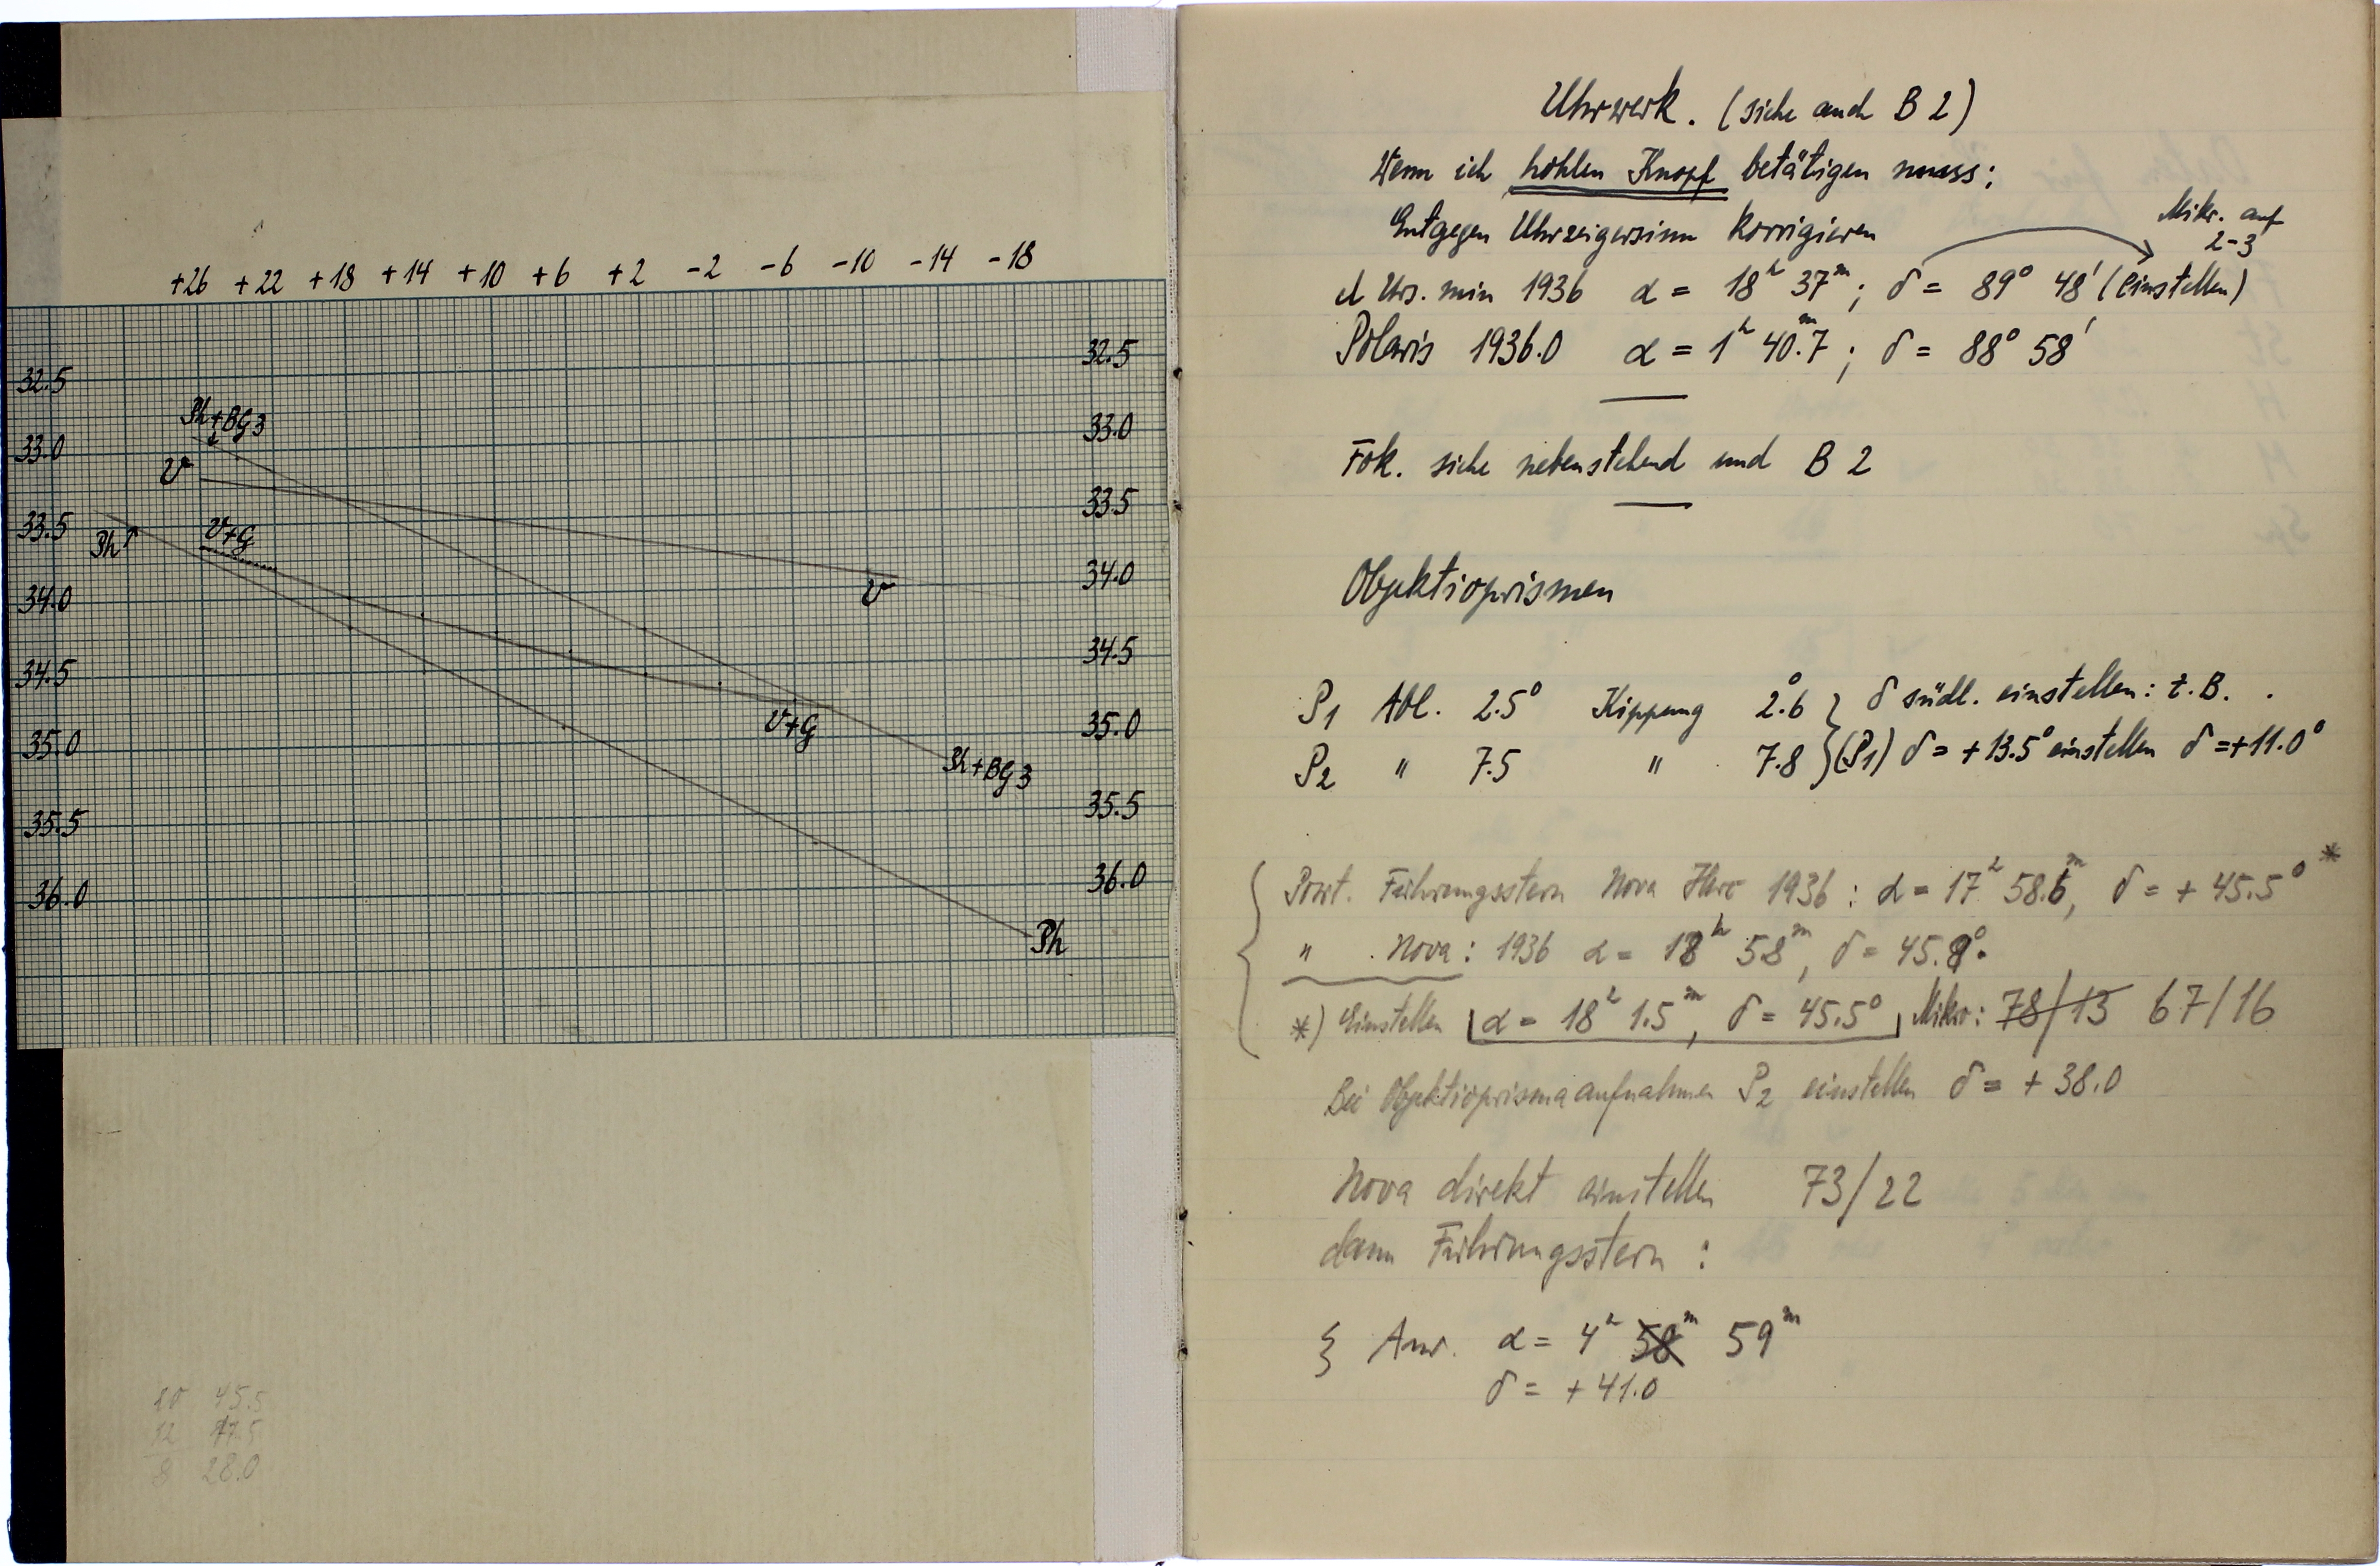 +26 +22 +18 +14 +10 +6 +2 -2 -6 -10 -14 -18
32.5
33.0
33.5
34.0
34.5
35.0
35.5
36.0
Ph+BG3
V
Ph
V+G
V
V+G
Ph+BG3
Ph
32.5
33.0
33.5
34.0
34.5
35.0
35.5
36.0
10 45.5
12 17.5
8 28.0
Uhrwerk. (siehe auch B 2)
Wenn ich hohlen Knopf betätigen muss:
Entgegen Uhrzeigersinn korrigieren
Mikr. auf
2-3
Urs. min 1936 α = 18h 37m; δ = 89° 48' (einstellen)
Polaris 1936.0 α = 1h 40.m7; δ = 88° 58'
Fok. siehe nebenstehend und B 2
Objektivprismen
P1 Abl. 2.5° Kippung 2.°6 } δ südl. einstellen: z.B.
P2 " 7.5 " 7.8 } (P1) δ = +13.5° einstellen δ = +11.0°
Posit. Führungsstern Nova Herc 1936: α = 17h 58.6m, δ = + 45.5° *
" Nova: 1936 α = 18h 58m, δ = 45.9°
*) Einstellen α = 18h 1.5m, δ = 45.5° Mikr: 78/13 67/16
Bei Objektivprismaaufnahmen P2 einstellen δ = + 38.0
Nova direkt einstellen 73/22
dann Führungsstern:
ξ Aur. α = 4h 58m 59m
δ = + 41.0